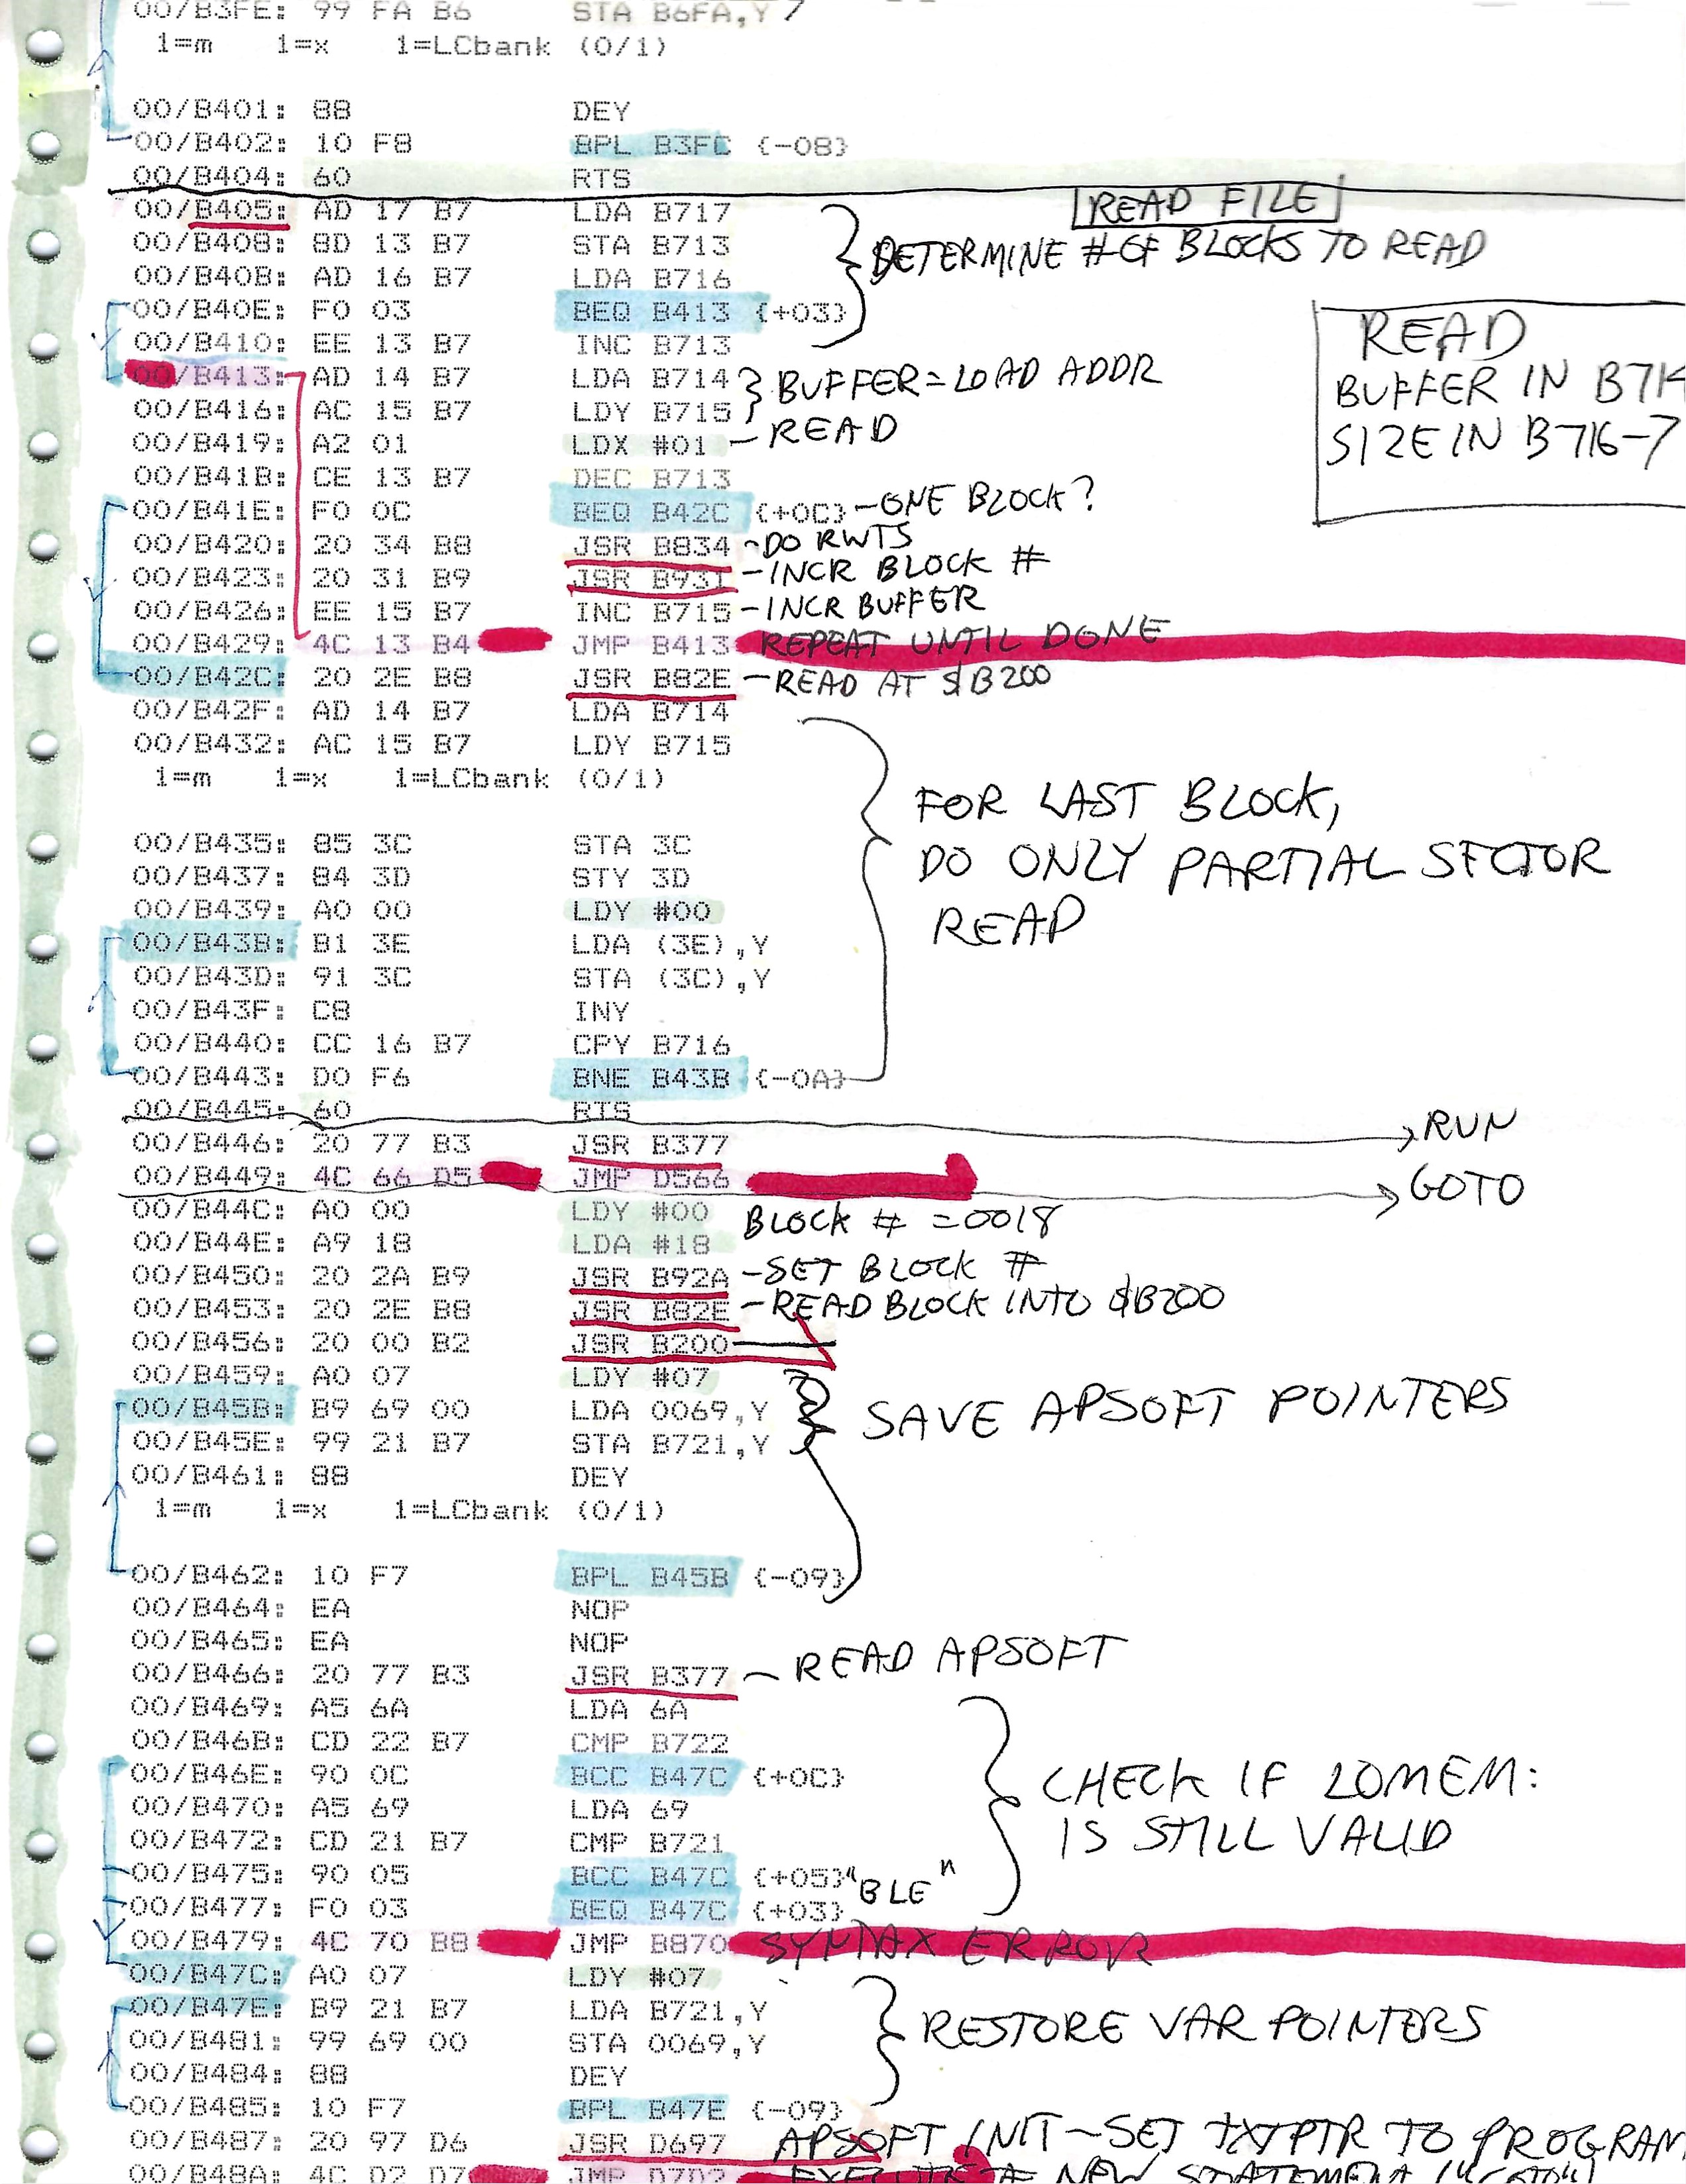 00/B3FE: 99 FA B6 STA B6FA,Y
1=m 1=x 1=LCbank (0/1)
00/B401: 88 DEY
00/B402: 10 F8 BPL B3FC {-08}
00/B404: 60 RTS
READ FILE
00/B405: AD 17 B7 LDA B717
00/B408: 8D 13 B7 STA B713 DETERMINE # OF BLOCKS TO READ
00/B40B: AD 16 B7 LDA B716
00/B40E: F0 03 BEQ B413 {+03}
00/B410: EE 13 B7 INC B713
READ
BUFFER IN B714
SIZE IN B716-7
00/B413: AD 14 B7 LDA B714 BUFFER=LOAD ADDR
00/B416: AC 15 B7 LDY B715
00/B419: A2 01 LDX #01 - READ
00/B41B: CE 13 B7 DEC B713
00/B41E: F0 0C BEQ B42C {+0C} - ONE BLOCK?
00/B420: 20 34 B8 JSR B834 - DO RWTS
00/B423: 20 31 B9 JSR B931 - INCR BLOCK #
00/B426: EE 15 B7 INC B715 - INCR BUFFER
00/B429: 4C 13 B4 JMP B413 REPEAT UNTIL DONE
00/B42C: 20 2E B8 JSR B82E - READ AT $B200
00/B42F: AD 14 B7 LDA B714
00/B432: AC 15 B7 LDY B715
1=m 1=x 1=LCbank (0/1)
FOR LAST BLOCK,
DO ONLY PARTIAL SECTOR
READ
00/B435: 85 3C STA 3C
00/B437: 84 3D STY 3D
00/B439: A0 00 LDY #00
00/B43B: B1 3E LDA (3E),Y
00/B43D: 91 3C STA (3C),Y
00/B43F: C8 INY
00/B440: CC 16 B7 CPY B716
00/B443: D0 F6 BNE B43B {-0A}
00/B445: 60 RTS
00/B446: 20 77 B3 JSR B377 RUN
00/B449: 4C 66 D5 JMP D566 GOTO
00/B44C: A0 00 LDY #00 BLOCK # =0018
00/B44E: A9 18 LDA #18
00/B450: 20 2A B9 JSR B92A - SET BLOCK #
00/B453: 20 2E B8 JSR B82E - READ BLOCK INTO $B200
00/B456: 20 00 B2 JSR B200
00/B459: A0 07 LDY #07
00/B45B: B9 69 00 LDA 0069,Y SAVE APSOFT POINTERS
00/B45E: 99 21 B7 STA B721,Y
00/B461: 88 DEY
1=m 1=x 1=LCbank (0/1)
00/B462: 10 F7 BPL B45B {-09}
00/B464: EA NOP
00/B465: EA NOP
00/B466: 20 77 B3 JSR B377 - READ APSOFT
00/B469: A5 6A LDA 6A
00/B46B: CD 22 B7 CMP B722
00/B46E: 90 0C BCC B47C {+0C} CHECK IF LOMEM:
00/B470: A5 69 LDA 69 IS STILL VALID
00/B472: CD 21 B7 CMP B721
00/B475: 90 05 BCC B47C {+05} "BLE"
00/B477: F0 03 BEQ B47C {+03}
00/B479: 4C 70 B8 JMP B870 SYNTAX ERROR
00/B47C: A0 07 LDY #07
00/B47E: B9 21 B7 LDA B721,Y RESTORE VAR POINTERS
00/B481: 99 69 00 STA 0069,Y
00/B484: 88 DEY
00/B485: 10 F7 BPL B47E {-09}
00/B487: 20 97 D6 JSR D697 APSOFT INIT - SET TXTPTR TO PROGRAM
00/B48A: 4C D2 D7 JMP D7D2 EXECUTE A NEW STATEMENT ("GOTO")